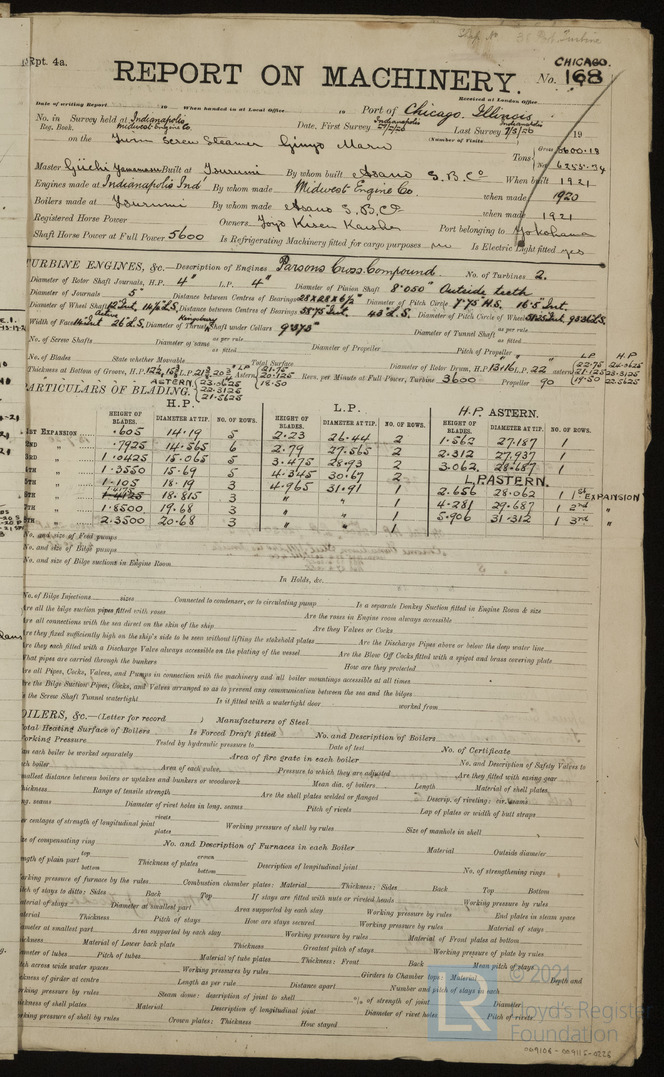 Rpt. 4a.
CHICAGO.
REPORT ON MACHINERY. No. 168
Date of writing Report 19 When handed in at Local Office 19 Received at London Office
Port of Chicago, Illinois
No. in Survey held at Indianapolis Date, First Survey Indianapolis Last Survey Indianapolis 19
Reg. Book. Midwest Engine Co. (Number of Visits
on the Twin Screw Steamer Ginyo Maru Tons Gross 8600.18
Net 6255.74
Master Giichi Built at Tsurumi By whom built Asano S.B.Co When built 1921
Engines made at Indianapolis Ind By whom made Midwest Engine Co. when made 1920
Boilers made at Tsurumi By whom made Asano S.B.Co when made 1921
Registered Horse Power Owners Toyo Kisen Kaisha Port belonging to Yokohama
Shaft Horse Power at Full Power 5600 Is Refrigerating Machinery fitted for cargo purposes no Is Electric Light fitted yes
TURBINE ENGINES, &c.—Description of Engines Parsons Cross Compound. No. of Turbines 2.
Diameter of Rotor Shaft Journals, H.P. 4" L.P. 4" Diameter of Pinion Shaft 8.050" Outside teeth
Diameter of Journals 5" Distance between Centres of Bearings Diameter of Pitch Circle 7.75 H.S. 16.5 Int.
Diameter of Wheel Shaft Distance between Centres of Bearings Diameter of Pitch Circle of Wheel
Width of Face Diameter of Thrust Shaft under Collars 9.875" Diameter of Tunnel Shaft as per rule
as fitted
No. of Screw Shafts Diameter of same as per rule
as fitted Diameter of Propeller Pitch of Propeller
No. of Blades State whether Moveable Total Surface Diameter of Rotor Drum, H.P. L.P. 22 Astern
Thickness at Bottom of Groove, H.P. L.P. Astern Revs. per Minute at Full Power, Turbine 3600 Propeller 90
PARTICULARS OF BLADING.
H.P. L.P. H.P. ASTERN.
HEIGHT OF BLADES. DIAMETER AT TIP. NO. OF ROWS. HEIGHT OF BLADES. DIAMETER AT TIP. NO. OF ROWS. HEIGHT OF BLADES. DIAMETER AT TIP. NO. OF ROWS.
1ST EXPANSION .605 14.19 5 2.23 26.44 2 1.562 27.187 1
2ND " .7925 14.565 6 2.79 27.565 2 2.312 27.937 1
3RD " 1.0425 15.065 5 3.475 28.93 2 3.062 28.687 1
4TH " 1.3550 15.69 5 4.345 30.67 2 L.P. ASTERN.
5TH " 1.105 18.19 3 4.965 31.91 1 2.656 28.062 1 1st EXPANSION
6TH " 18.815 3 " " 1 4.281 29.687 1 2nd "
7TH " 1.8500 19.68 3 " " 1 5.906 31.312 1 3rd "
8TH " 2.3500 20.68 3 " " 1
No. and size of Feed pumps
No. and size of Bilge pumps
No. and size of Bilge suctions in Engine Room
In Holds, &c.
No. of Bilge Injections sizes Connected to condenser, or to circulating pump Is a separate Donkey Suction fitted in Engine Room & size
Are all the bilge suction pipes fitted with roses Are the roses in Engine room always accessible
Are all connections with the sea direct on the skin of the ship Are they Valves or Cocks
Are they fixed sufficiently high on the ship's side to be seen without lifting the stokehold plates Are the Discharge Pipes above or below the deep water line
Are they each fitted with a Discharge Valve always accessible on the plating of the vessel Are the Blow Off Cocks fitted with a spigot and brass covering plate
What pipes are carried through the bunkers How are they protected
Are all Pipes, Cocks, Valves, and Pumps in connection with the machinery and all boiler mountings accessible at all times
Are the Bilge Suction Pipes, Cocks, and Valves arranged so as to prevent any communication between the sea and the bilges
Is the Screw Shaft Tunnel watertight Is it fitted with a watertight door worked from
BOILERS, &c.—(Letter for record ) Manufacturers of Steel
Total Heating Surface of Boilers Is Forced Draft fitted No. and Description of Boilers
Working Pressure Tested by hydraulic pressure to Date of test No. of Certificate
Can each boiler be worked separately Area of fire grate in each boiler No. and Description of Safety Valves to
each boiler Area of each valve Pressure to which they are adjusted Are they fitted with easing gear
Smallest distance between boilers or uptakes and bunkers or woodwork Mean dia. of boilers Length Material of shell plates
Thickness Range of tensile strength Are the shell plates welded or flanged Descrip. of riveting: cir. seams
long. seams Diameter of rivet holes in long. seams Pitch of rivets Lap of plates or width of butt straps
Per centages of strength of longitudinal joint rivets
plates Working pressure of shell by rules Size of manhole in shell
Size of compensating ring No. and Description of Furnaces in each Boiler Material Outside diameter
Length of plain part top
bottom Thickness of plates crown
bottom Description of longitudinal joint No. of strengthening rings
Working pressure of furnace by the rules Combustion chamber plates: Material Thickness: Sides Back Top Bottom
Pitch of stays to ditto: Sides Back Top If stays are fitted with nuts or riveted heads Working pressure by rules
Material of stays Diameter at smallest part Area supported by each stay Working pressure by rules End plates in steam space
Material Thickness Pitch of stays How are stays secured Working pressure by rules Material of stays
Diameter at smallest part Area supported by each stay Working pressure by rules Material of Front plates at bottom
Thickness Material of Lower back plate Thickness Greatest pitch of stays Working pressure of plate by rules
Diameter of tubes Pitch of tubes Material of tube plates Thickness: Front Back Mean pitch of stays
Pitch across wide water spaces Working pressures by rules Girders to Chamber tops: Material Depth and
thickness of girder at centre Length as per rule Distance apart Number and pitch of stays in each
Working pressure by rules Steam dome: description of joint to shell % of strength of joint Diameter
Thickness of shell plates Material Description of longitudinal joint Diameter of rivet holes Pitch of rivets
Working pressure of shell by rules Crown plates: Thickness How stayed
© 2021
Lloyd's Register
Foundation
009106-009115-0226